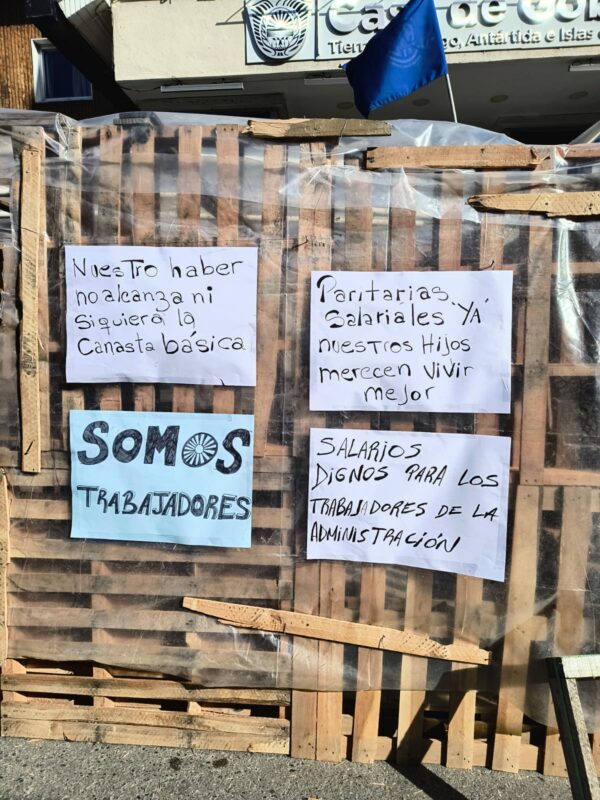 Casa de Gob
Antártida e Islas
NuesTro haber
no alcanza ni
siquiera la
Canasta básica
Paritarias
Salariales YA
nuesTros Hijos
merecen vivir
mejor
SOMOS
TRABAJADORES
SALARIOS
DIGNOS PARA LOS
TRABAJADORES DE LA
ADMINISTRACIÓN